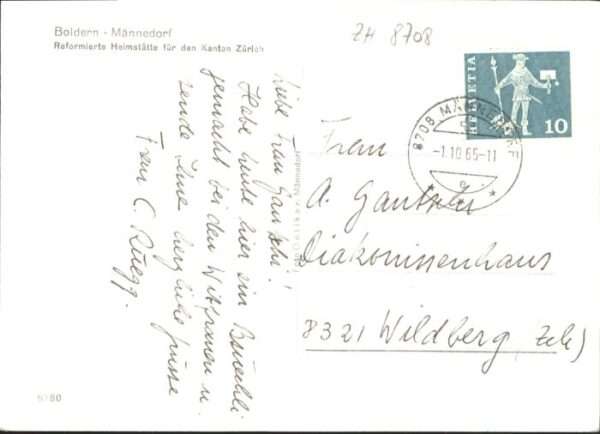 Boldern - Männedorf
Reformierte Heimstätte für den Kanton Zürich
ZH 8708
HELVETIA
10
8708 MÄNNEDORF
-1.10.65-11
Liebe Frau Gautschi!
Habe heute hier ein Bsuechli
gemacht bei den Witfrauen u.
sende Ihne herzliche Grüsse
Frau C. Rüegg.
Frau
A. Gautschi
Diakonissenhaus
8321 Wildberg (Zch)
6080